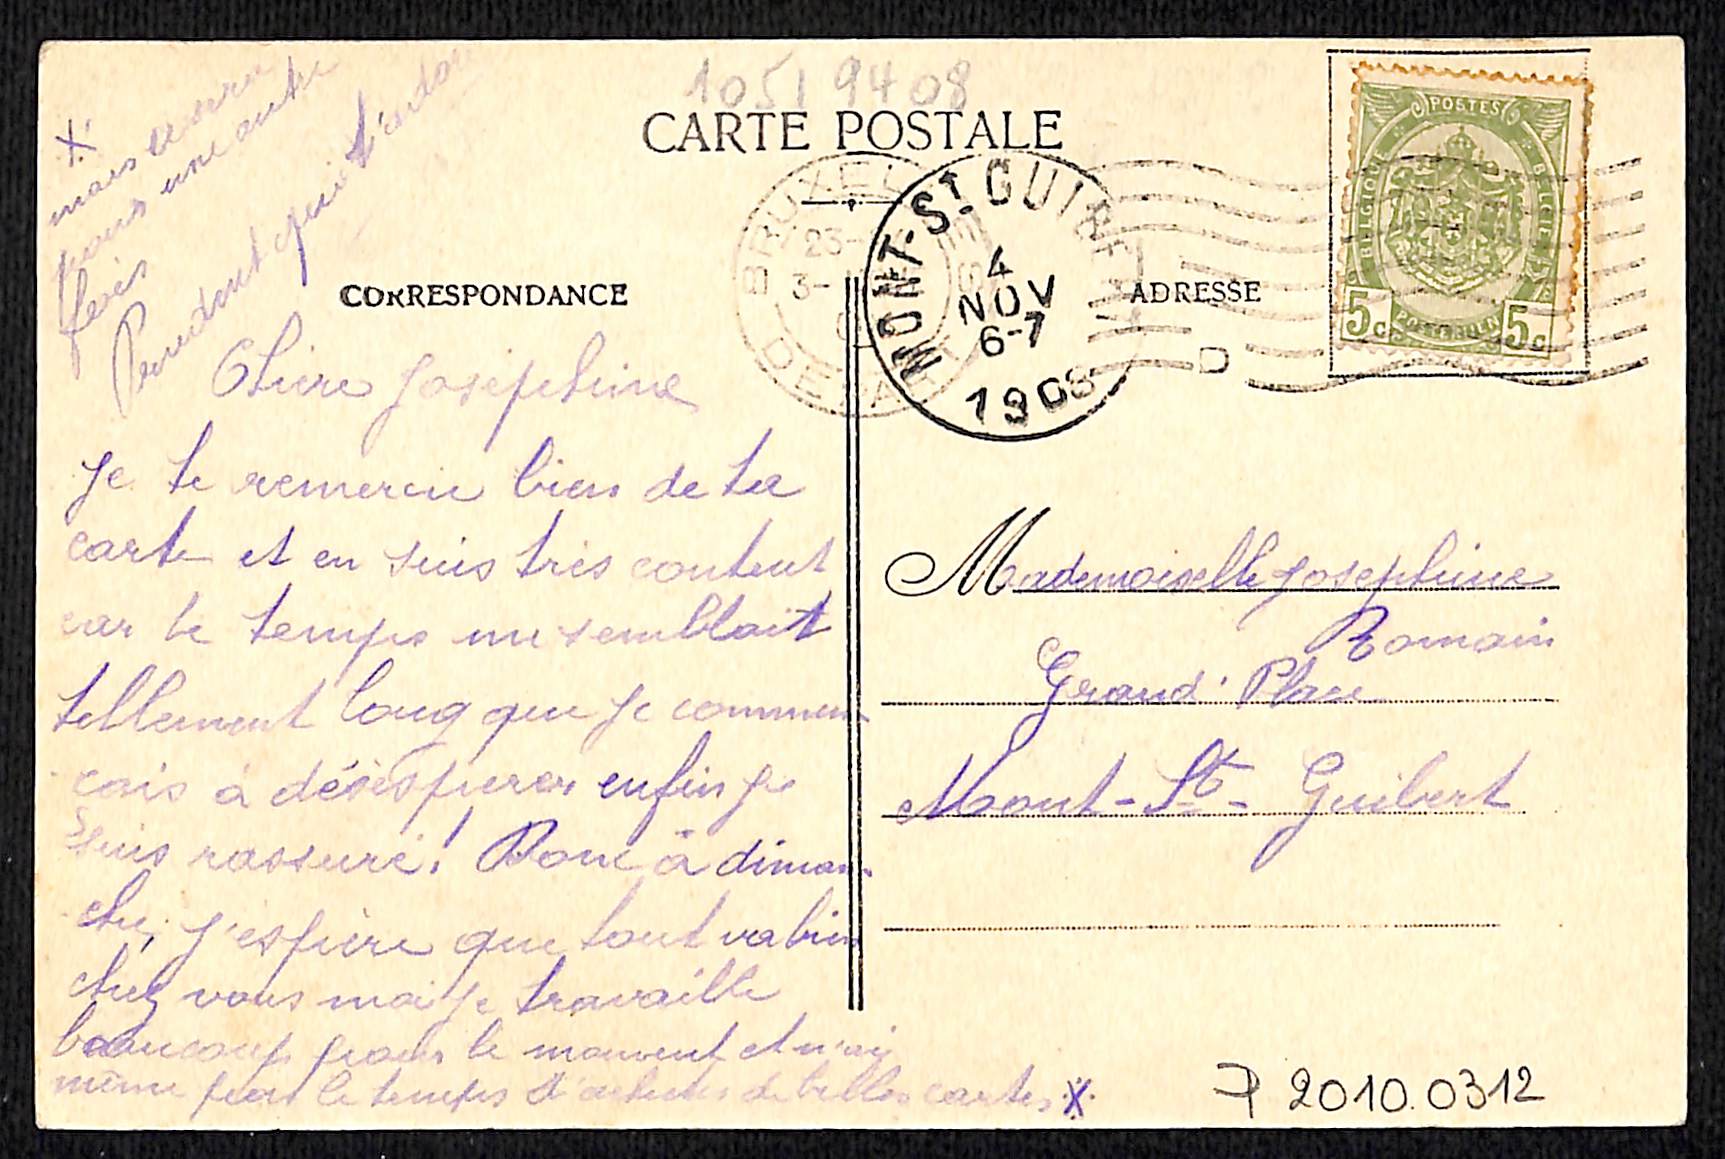 10519408
CARTE POSTALE
CORRESPONDANCE
ADRESSE
POSTES
BELGIQUE
BELGIE
POSTERIJEN
5c 5c
BRUXELLES
DEPART
MONT-ST GUIBERT
4
NOV
6-7
1908
D
Chère Joséphine
Je te remercie bien de ta
carte et en suis très content
car le temps me semblait
tellement long que je commen-
cais à désésperer enfin je
suis rassuré! Donc à diman-
che, j'espère que tout va bien
chez vous moi je travaille
beaucoup pour le moment et n'ai
même pas le temps d'acheter de belles cartes X.
X
mais ce sera
pour une autre
fois
Mademoiselle Joséphine
Romain
Grand' Place
Mont-St-Guibert
P 2010.0312